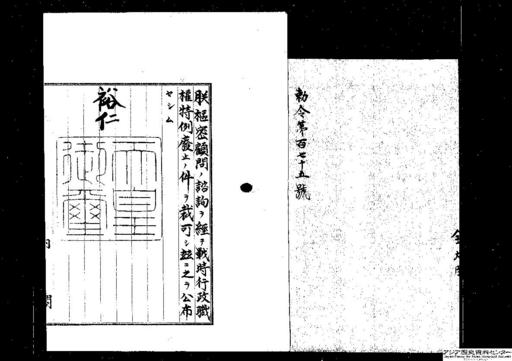 勅令第百七十五號
朕樞密顧問ノ諮詢ヲ經テ戰時行政職
權特例廢止ノ件ヲ裁可シ茲ニ之ヲ公布
セシム
裕仁
天皇
御璽
内
閣
アジア歴史資料センター